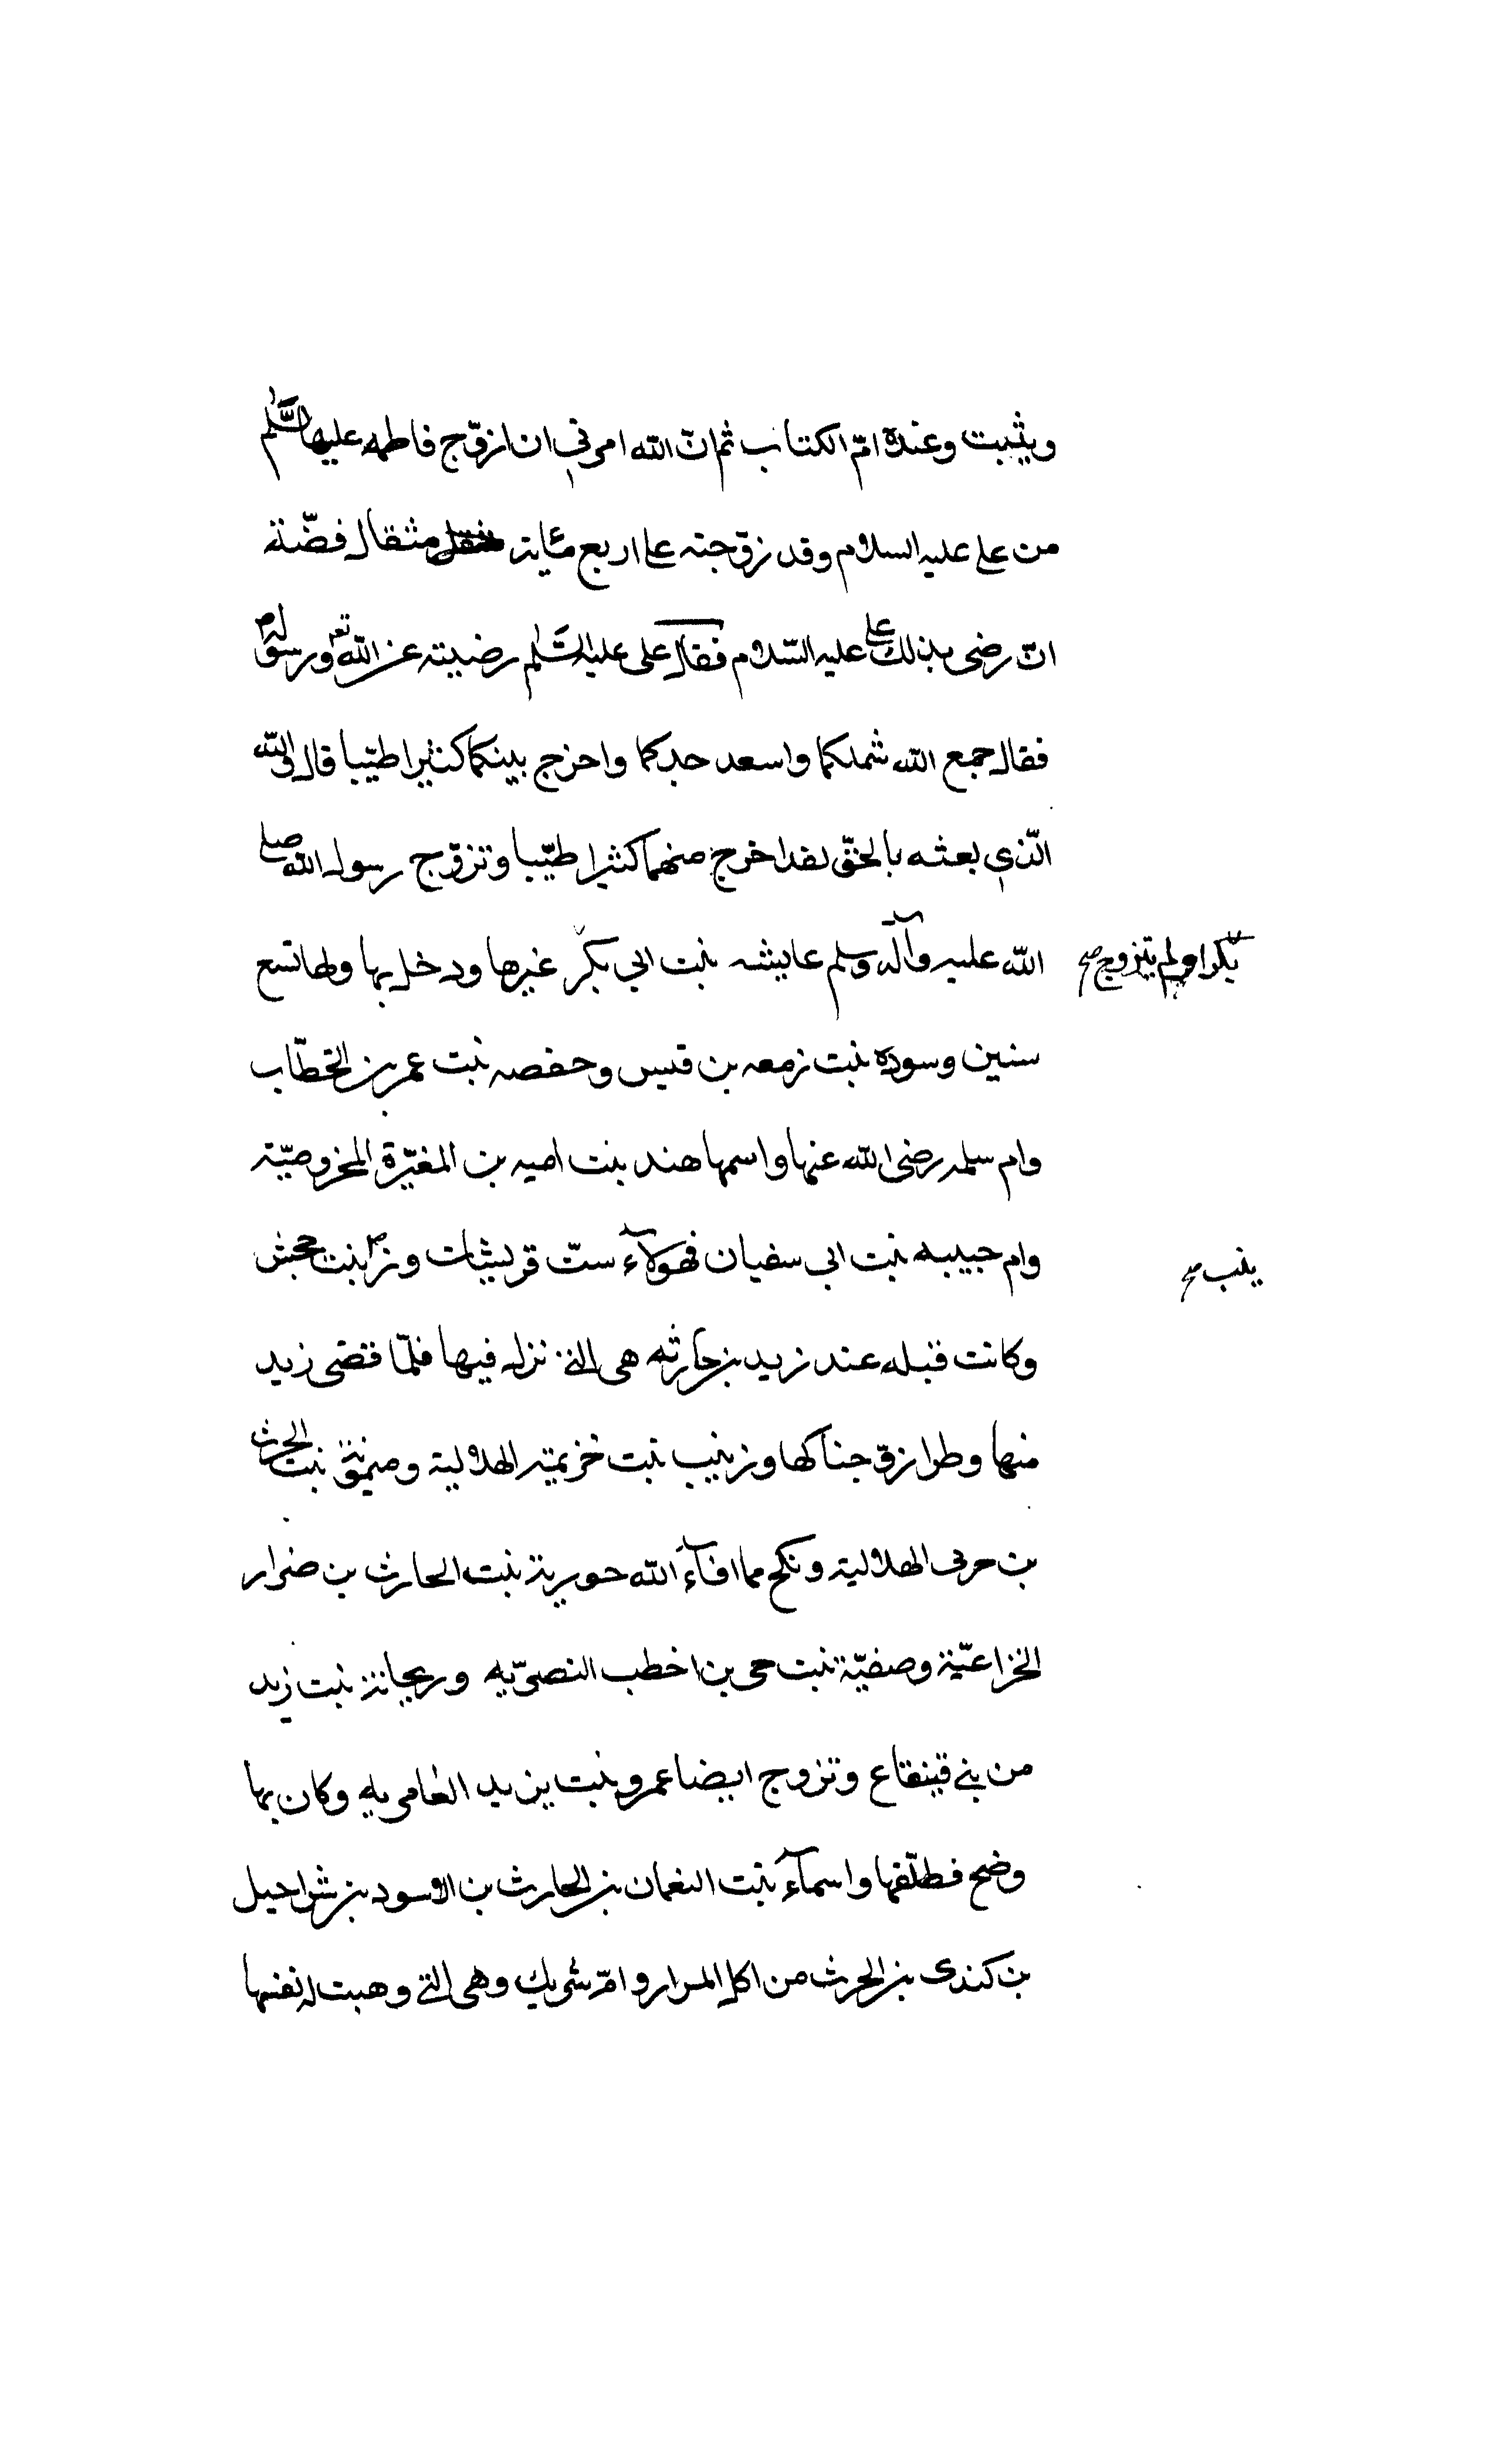 ويثبت وعنده امّ الكتاب ثم انّ الله امرني ان ازوّج فاطمه عليها السَّلم
من علي عليه السلام وقد زوّجته على اربع مئاية مثقال فضّة
انّ رضى بذلك علي عليه السّلام فقال على عليه السَّلم رضيته عن الله تع ورسوله ص
فقال جمع الله شملكما واسعد جدكما واخرج بينكما كثيرا طيّبا قال فو الله
الّذي بعثه بالحقّ لقد اخرج منهما كثيرا طيّبا وتزوّج رسول الله صلى
الله عليه وآله وسلم عايشه بنت ابي بكر غيرها ودخل بها ولها تسع
بكرا ولم يتزوج صح
سنين وسوده بنت زمعه بن قيس وحفصه بنت عمر بن الخطّاب
وام سلمه رضى الله عنها واسمها هند بنت اميه بن المغيرة المخزوميّة
وام حبيبه بنت ابى سفيان فهولآء ستّ قريشيات وز بنت جحش
ينب صح
وكانت قبله عند زيد بن حارثه هى التي نزل فيها فلمّا قضى زيد
منها وطرا زوّجناكها وزينب بنت خزيمة الهلالية وميمونة بنت الحرث
بن حرب الهلالية ونكح مما افآء الله جويرية بنت الحارث بن ضرار
الخزاعيّة وصفيّة بنت حى بن اخطب النضريّه وريحانة بنت زيد
من بني قينقاع وتزوج ايضا عمرو بنت يزيد العامريه وكان بها
وضح فطلّقها واسمآء بنت النعمان بن الحارث بن الاسود بن شراحيل
بن كندى بن الحرث من اكل المرار وامّ شريك وهى التي وهبت له نفسها